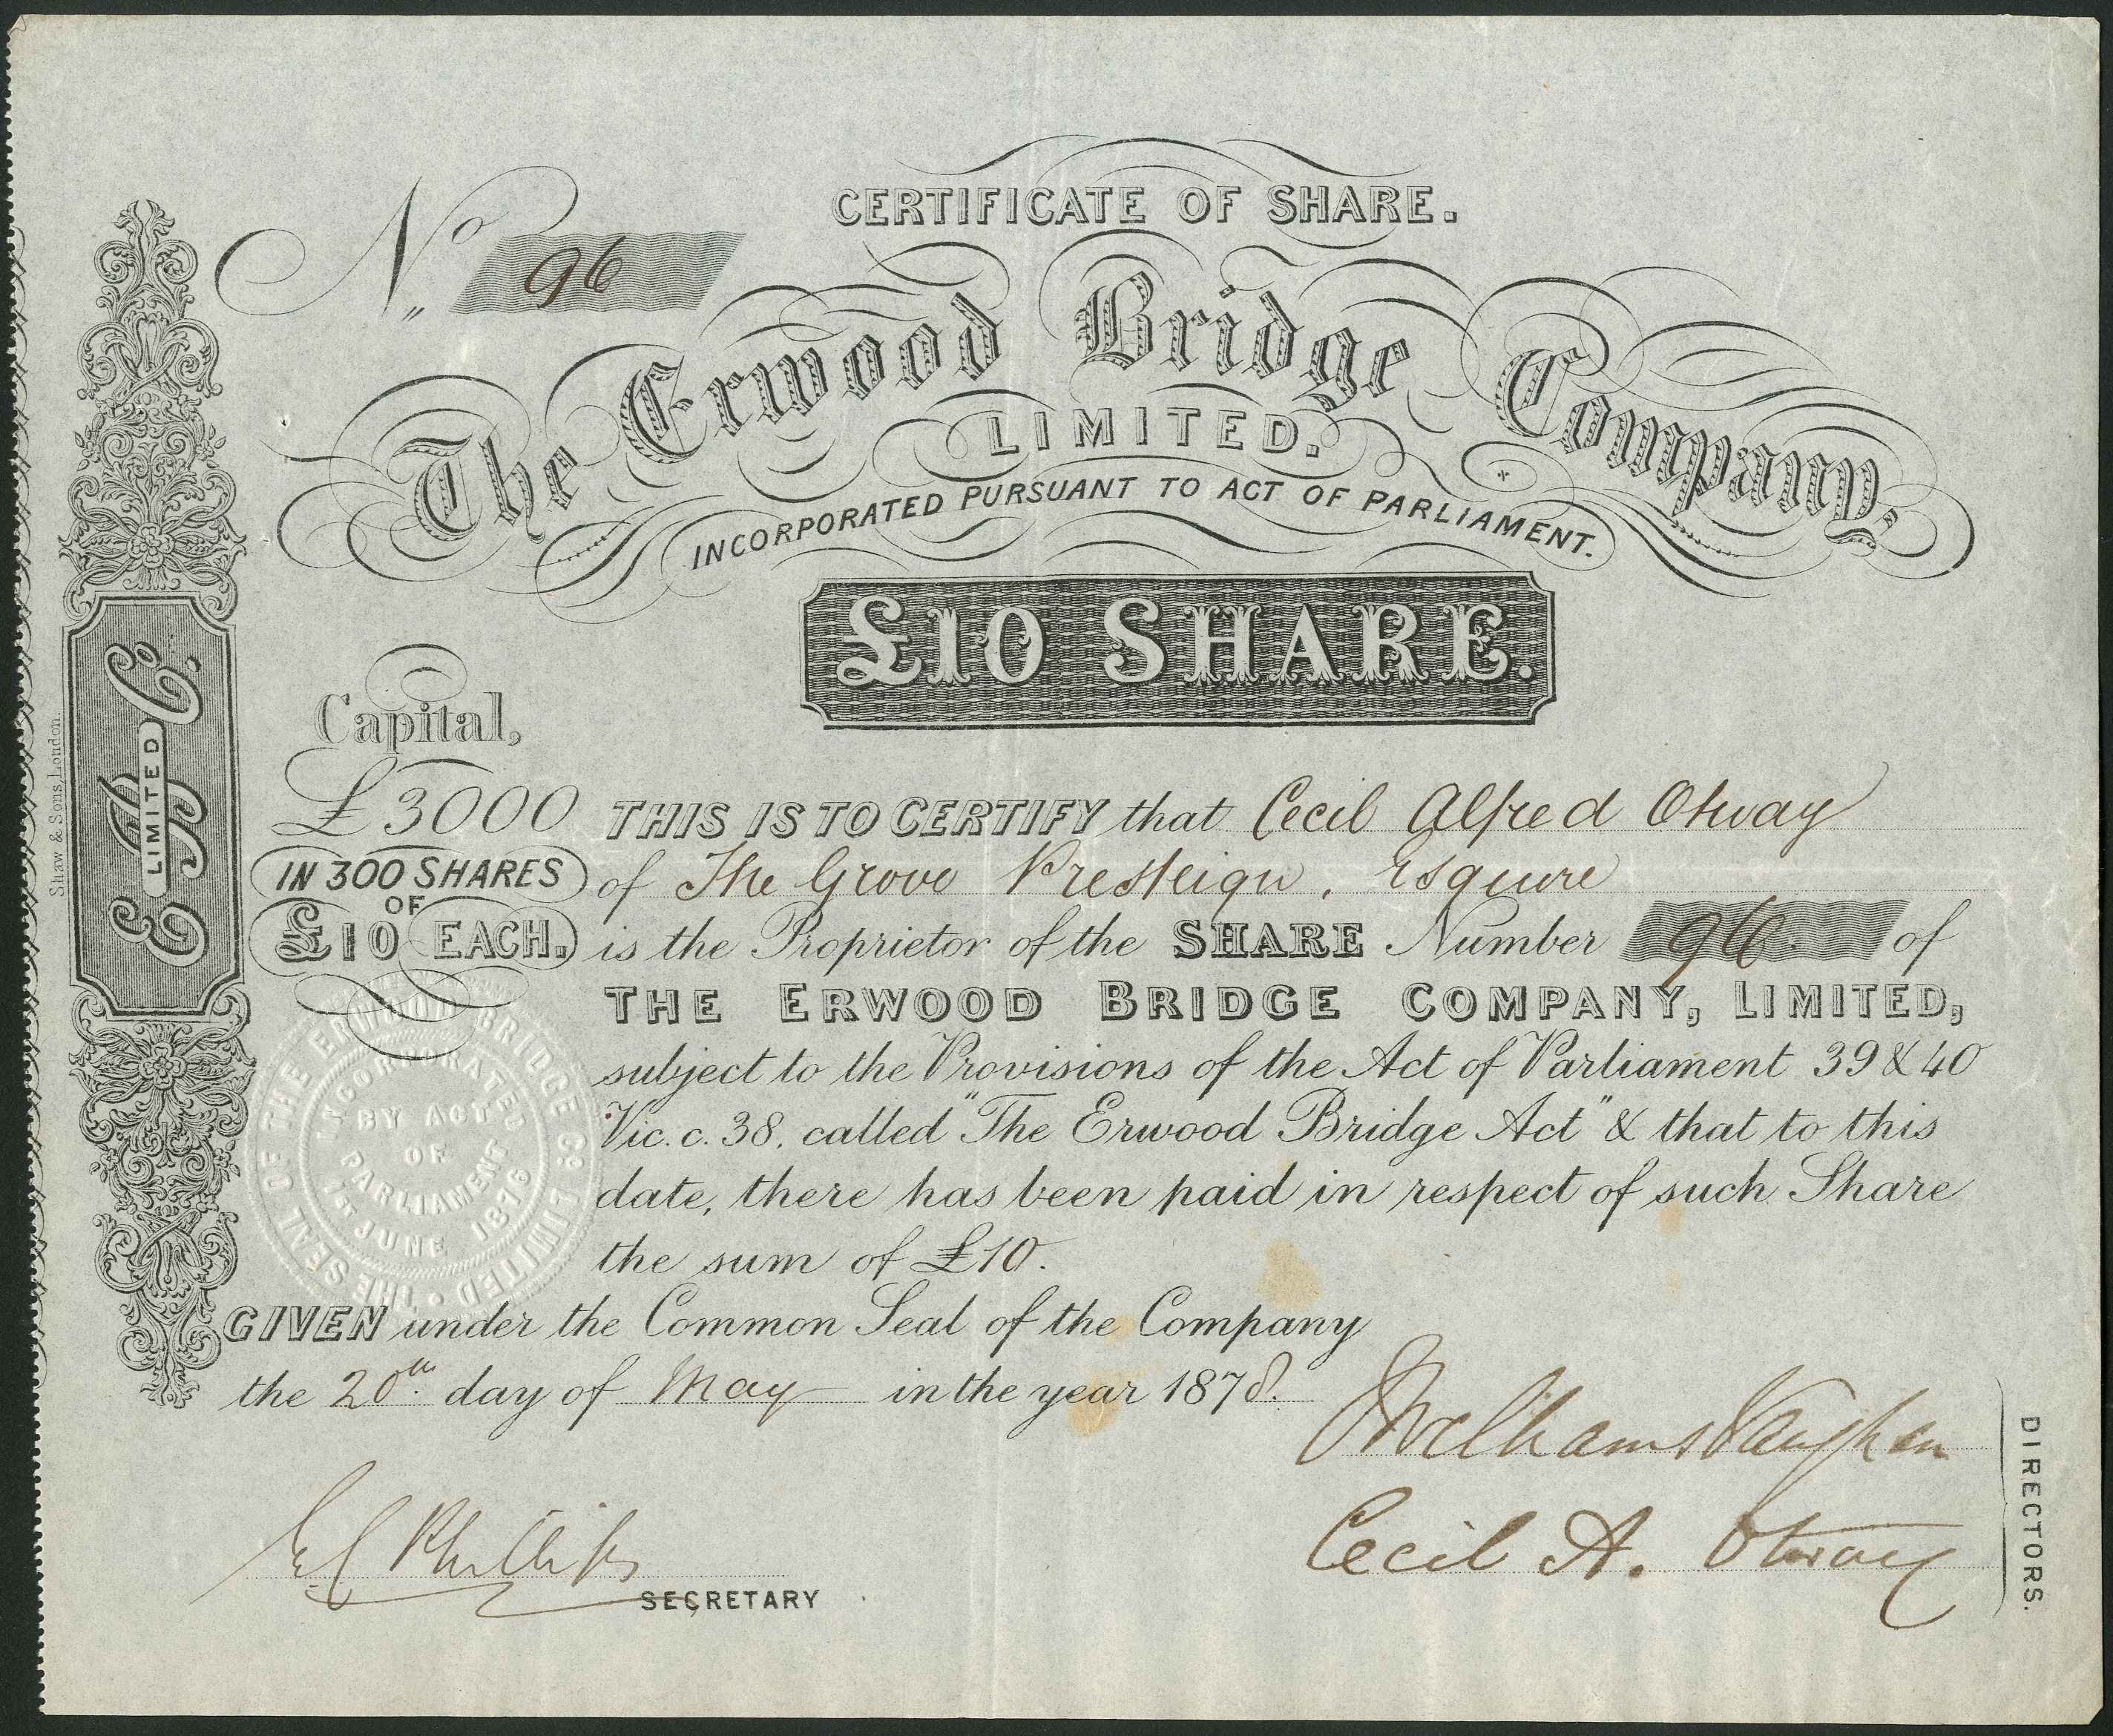 CERTIFICATE OF SHARE.
No 96
The Erwood Bridge Company,
LIMITED.
INCORPORATED PURSUANT TO ACT OF PARLIAMENT.
£10 SHARE.
Capital,
£3000
IN 300 SHARES
OF
£10 EACH.
E B Co.
LIMITED
Shaw & Sons, London.
THIS IS TO CERTIFY that Cecil Alfred Otway
of The Grove Presteign, Esquire
is the Proprietor of the SHARE Number 96 of
THE ERWOOD BRIDGE COMPANY, LIMITED,
subject to the Provisions of the Act of Parliament 39 & 40
Vic. c. 38, called "The Erwood Bridge Act" & that to this
date, there has been paid in respect of such Share
the sum of £10.
THE SEAL OF THE ERWOOD BRIDGE Co. LIMITED
INCORPORATED
BY ACT
OF
PARLIAMENT
1ST JUNE 1876
GIVEN under the Common Seal of the Company
the 20th day of May in the year 1878.
Williams Vaughan
Cecil A. Otway
DIRECTORS.
Phillips
SECRETARY